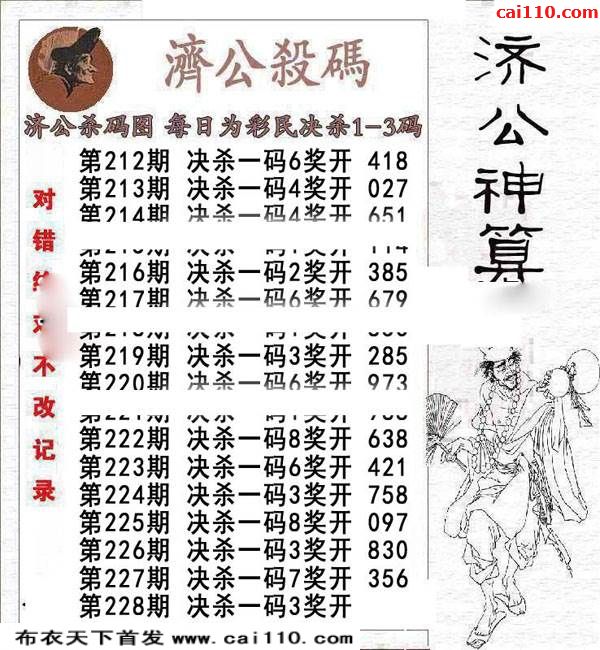 cai110.com
濟公殺碼
济公杀码图 每日为彩民决杀1-3码
第212期 决杀一码6奖开 418
第213期 决杀一码4奖开 027
第214期 决杀一码4奖开 651
第216期 决杀一码2奖开 385
第217期 决杀一码6奖开 679
第219期 决杀一码3奖开 285
第220期 决杀一码6奖开 973
第222期 决杀一码8奖开 638
第223期 决杀一码6奖开 421
第224期 决杀一码3奖开 758
第225期 决杀一码8奖开 097
第226期 决杀一码3奖开 830
第227期 决杀一码7奖开 356
第228期 决杀一码3奖开
对错 不改记录
济公神算
布衣天下首发 www.cai110.com